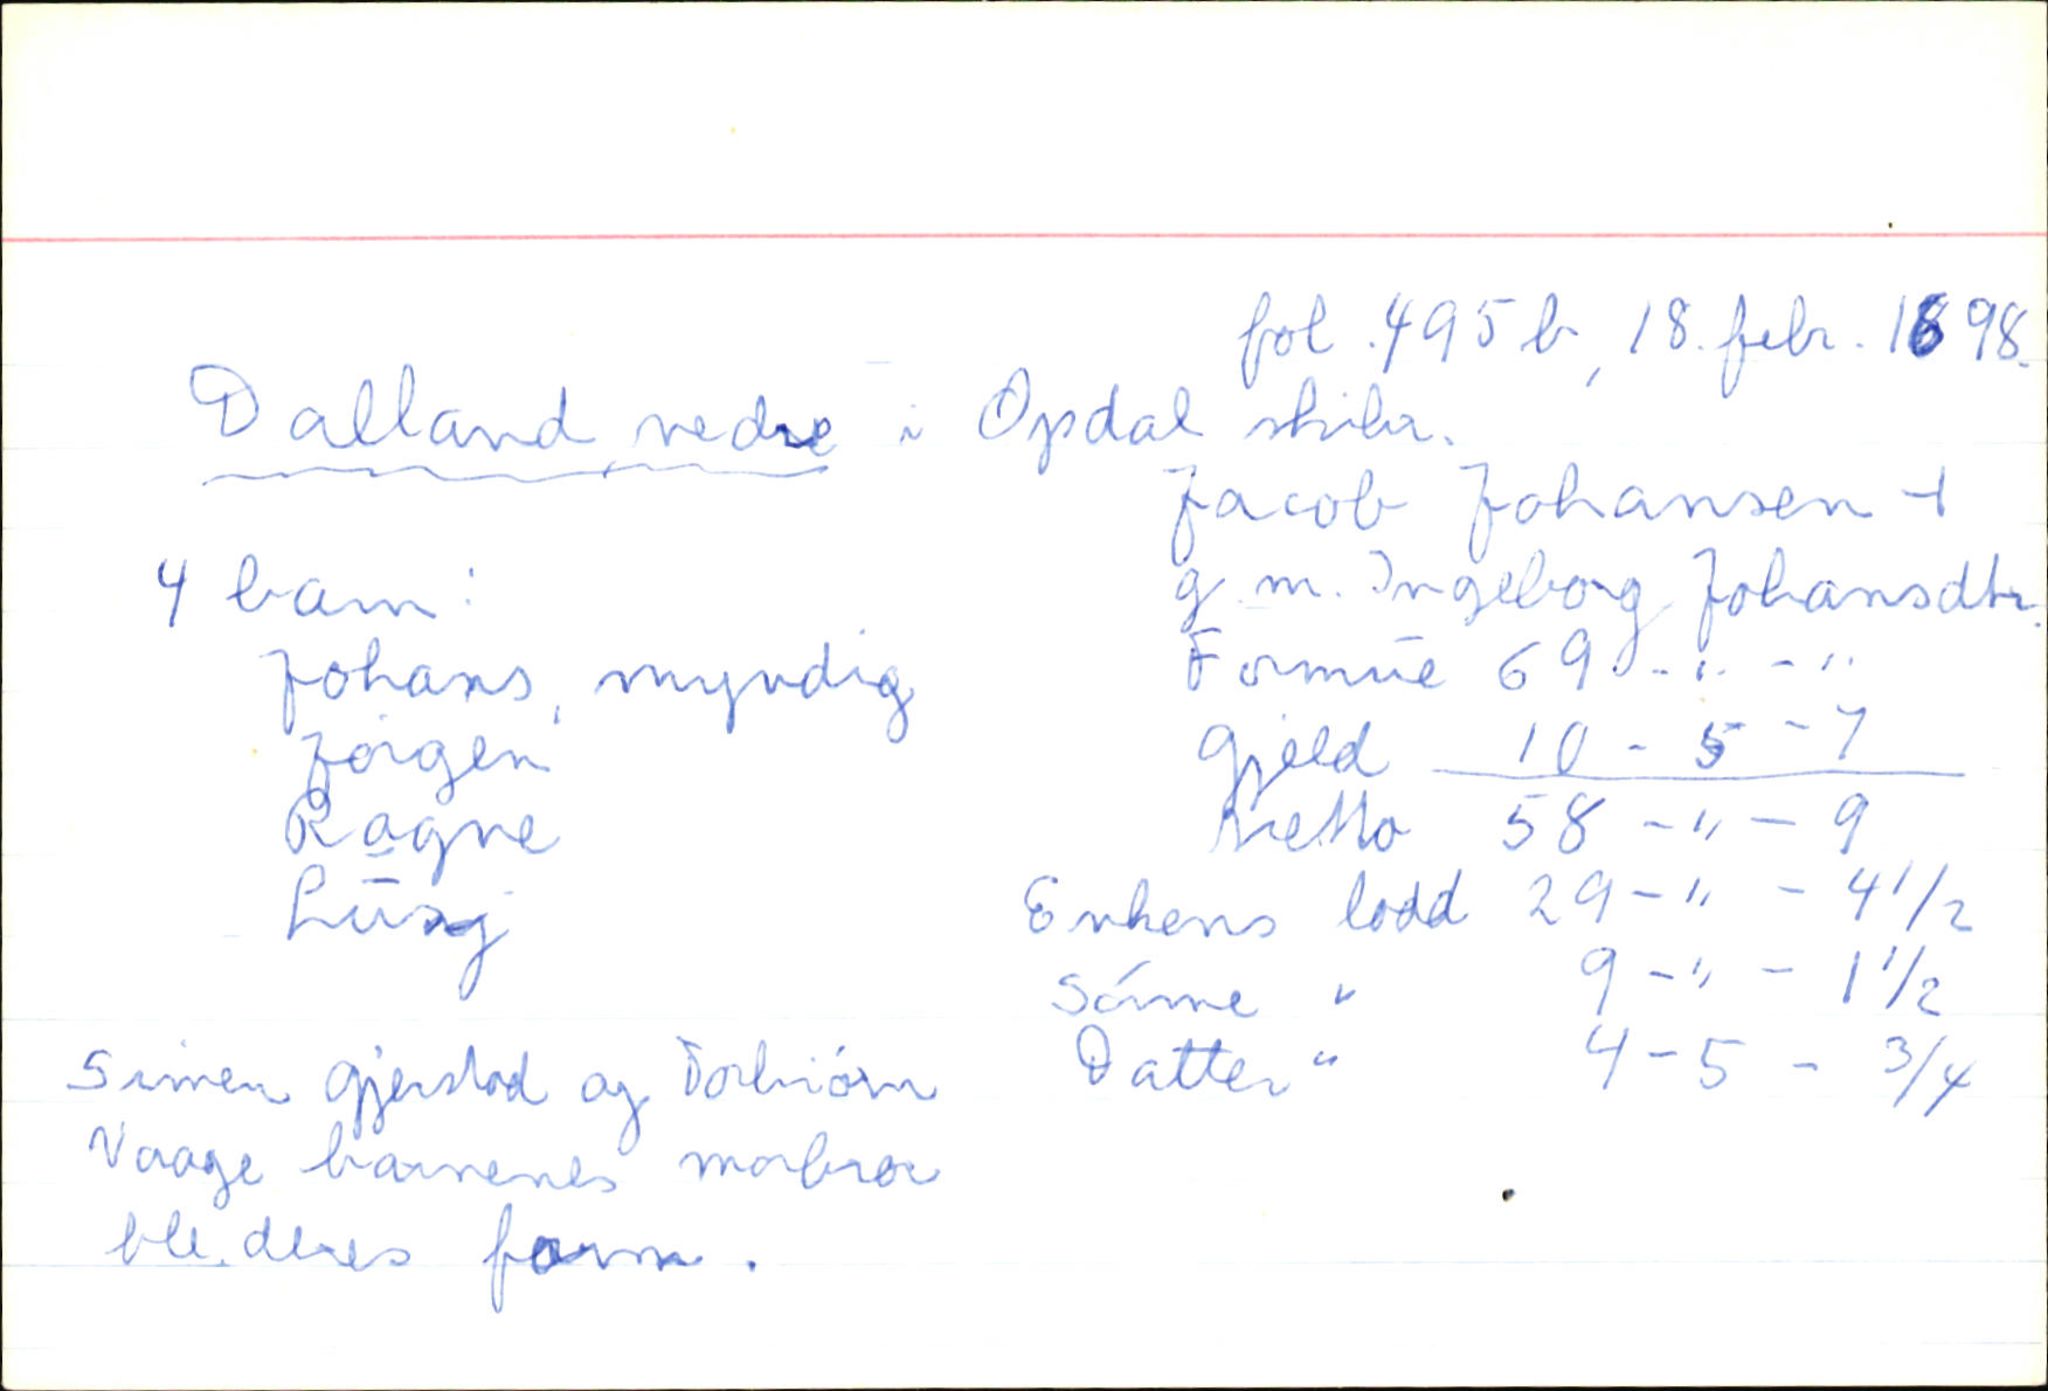 fol. 495 b, 18. febr. 1698.
Dalland nedre i Opdal skibr.
Jacob Johansen †
g. m. Ingeborg Johansdtr.
4 barn:
Johans, myndig
Jørgen
Ragne
Lūsj
Formūe 69 - " - "
Gjeld 10 - 5 - 7
Netto 58 - " - 9
Enkens lodd 29 - " - 4 1/2
Sønne " 9 - " - 1 1/2
Datter " 4 - 5 - 3/4
Simen Gjerstad og Torbiørn
Vaage barnenes morbror
ble deres form.